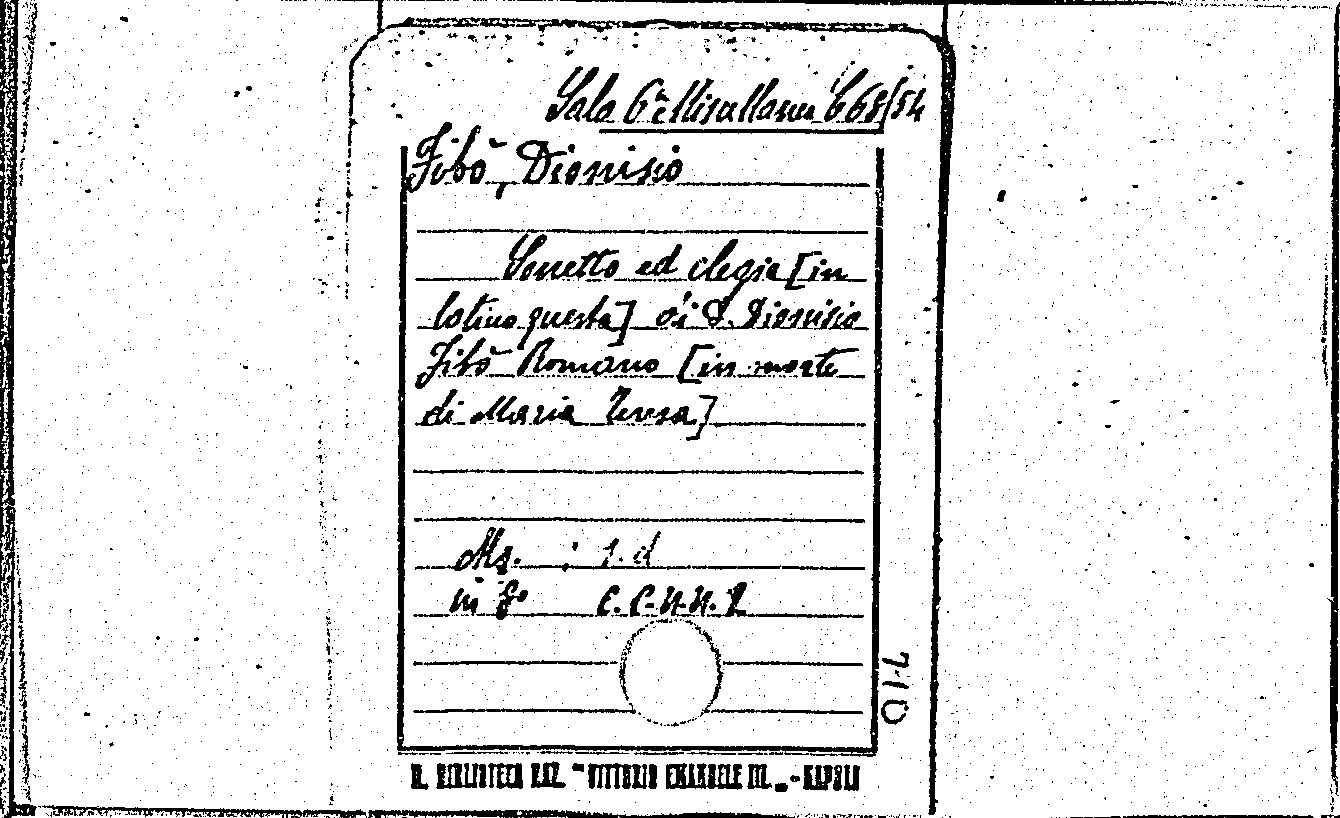 Sala 6ª Miscellanea B 68/54
Fibò, Dionisio
Sonetto ed elegia [in
latino questa] di S. Dionisio
Fibò Romano [in morte
di Maria Teresa]
Ms. : s. d
in 8º c.c.n.n. 2
710
R. BIBLIOTECA NAZ. "VITTORIO EMANUELE III." - NAPOLI